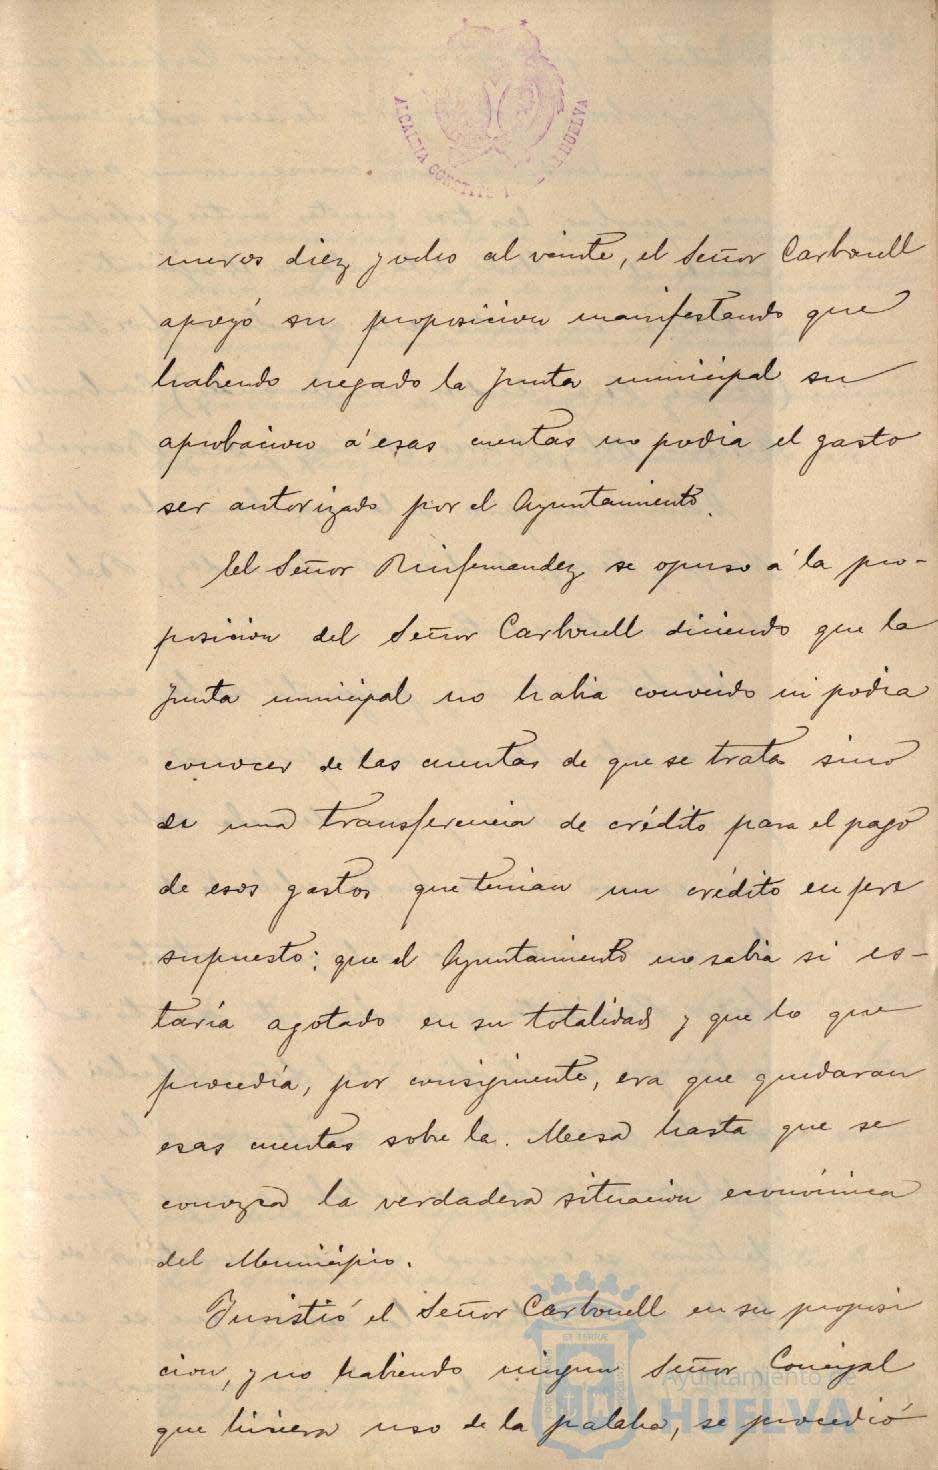 ALCALDIA CONSTIT HUELVA
meros diez y ocho al veinte, el Señor Carbonell
apoyó su proposicion manifestando que
habiendo negado la Junta municipal su
aprobacion á esas cuentas no podia el gasto
ser autorizado por el Ayuntamiento.
El Señor Rinfernandez se opuso á la pro-
posicion del Señor Carbonell diciendo que la
Junta municipal no habia conocido ni podia
conocer de las cuentas de que se trata sino
de una transferencia de crédito para el pago
de esos gastos que tenian un crédito en pre
supuesto: que el Ayuntamiento no sabia si es-
taría agotado en su totalidad y que lo que
procedía, por consiguiente, era que quedaran
esas cuentas sobre la Mesa hasta que se
conozca la verdadera situacion económica
del Municipio.
Insistió el Señor Carbonell en su proposi
cion, y no habiendo ningun Señor Concejal
que hiciera uso de la palabra, se procedió
Ayuntamiento de
HUELVA